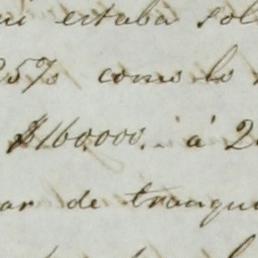 ni estaba sol
25% como lo
$160000.. á 2
ar de tranqui